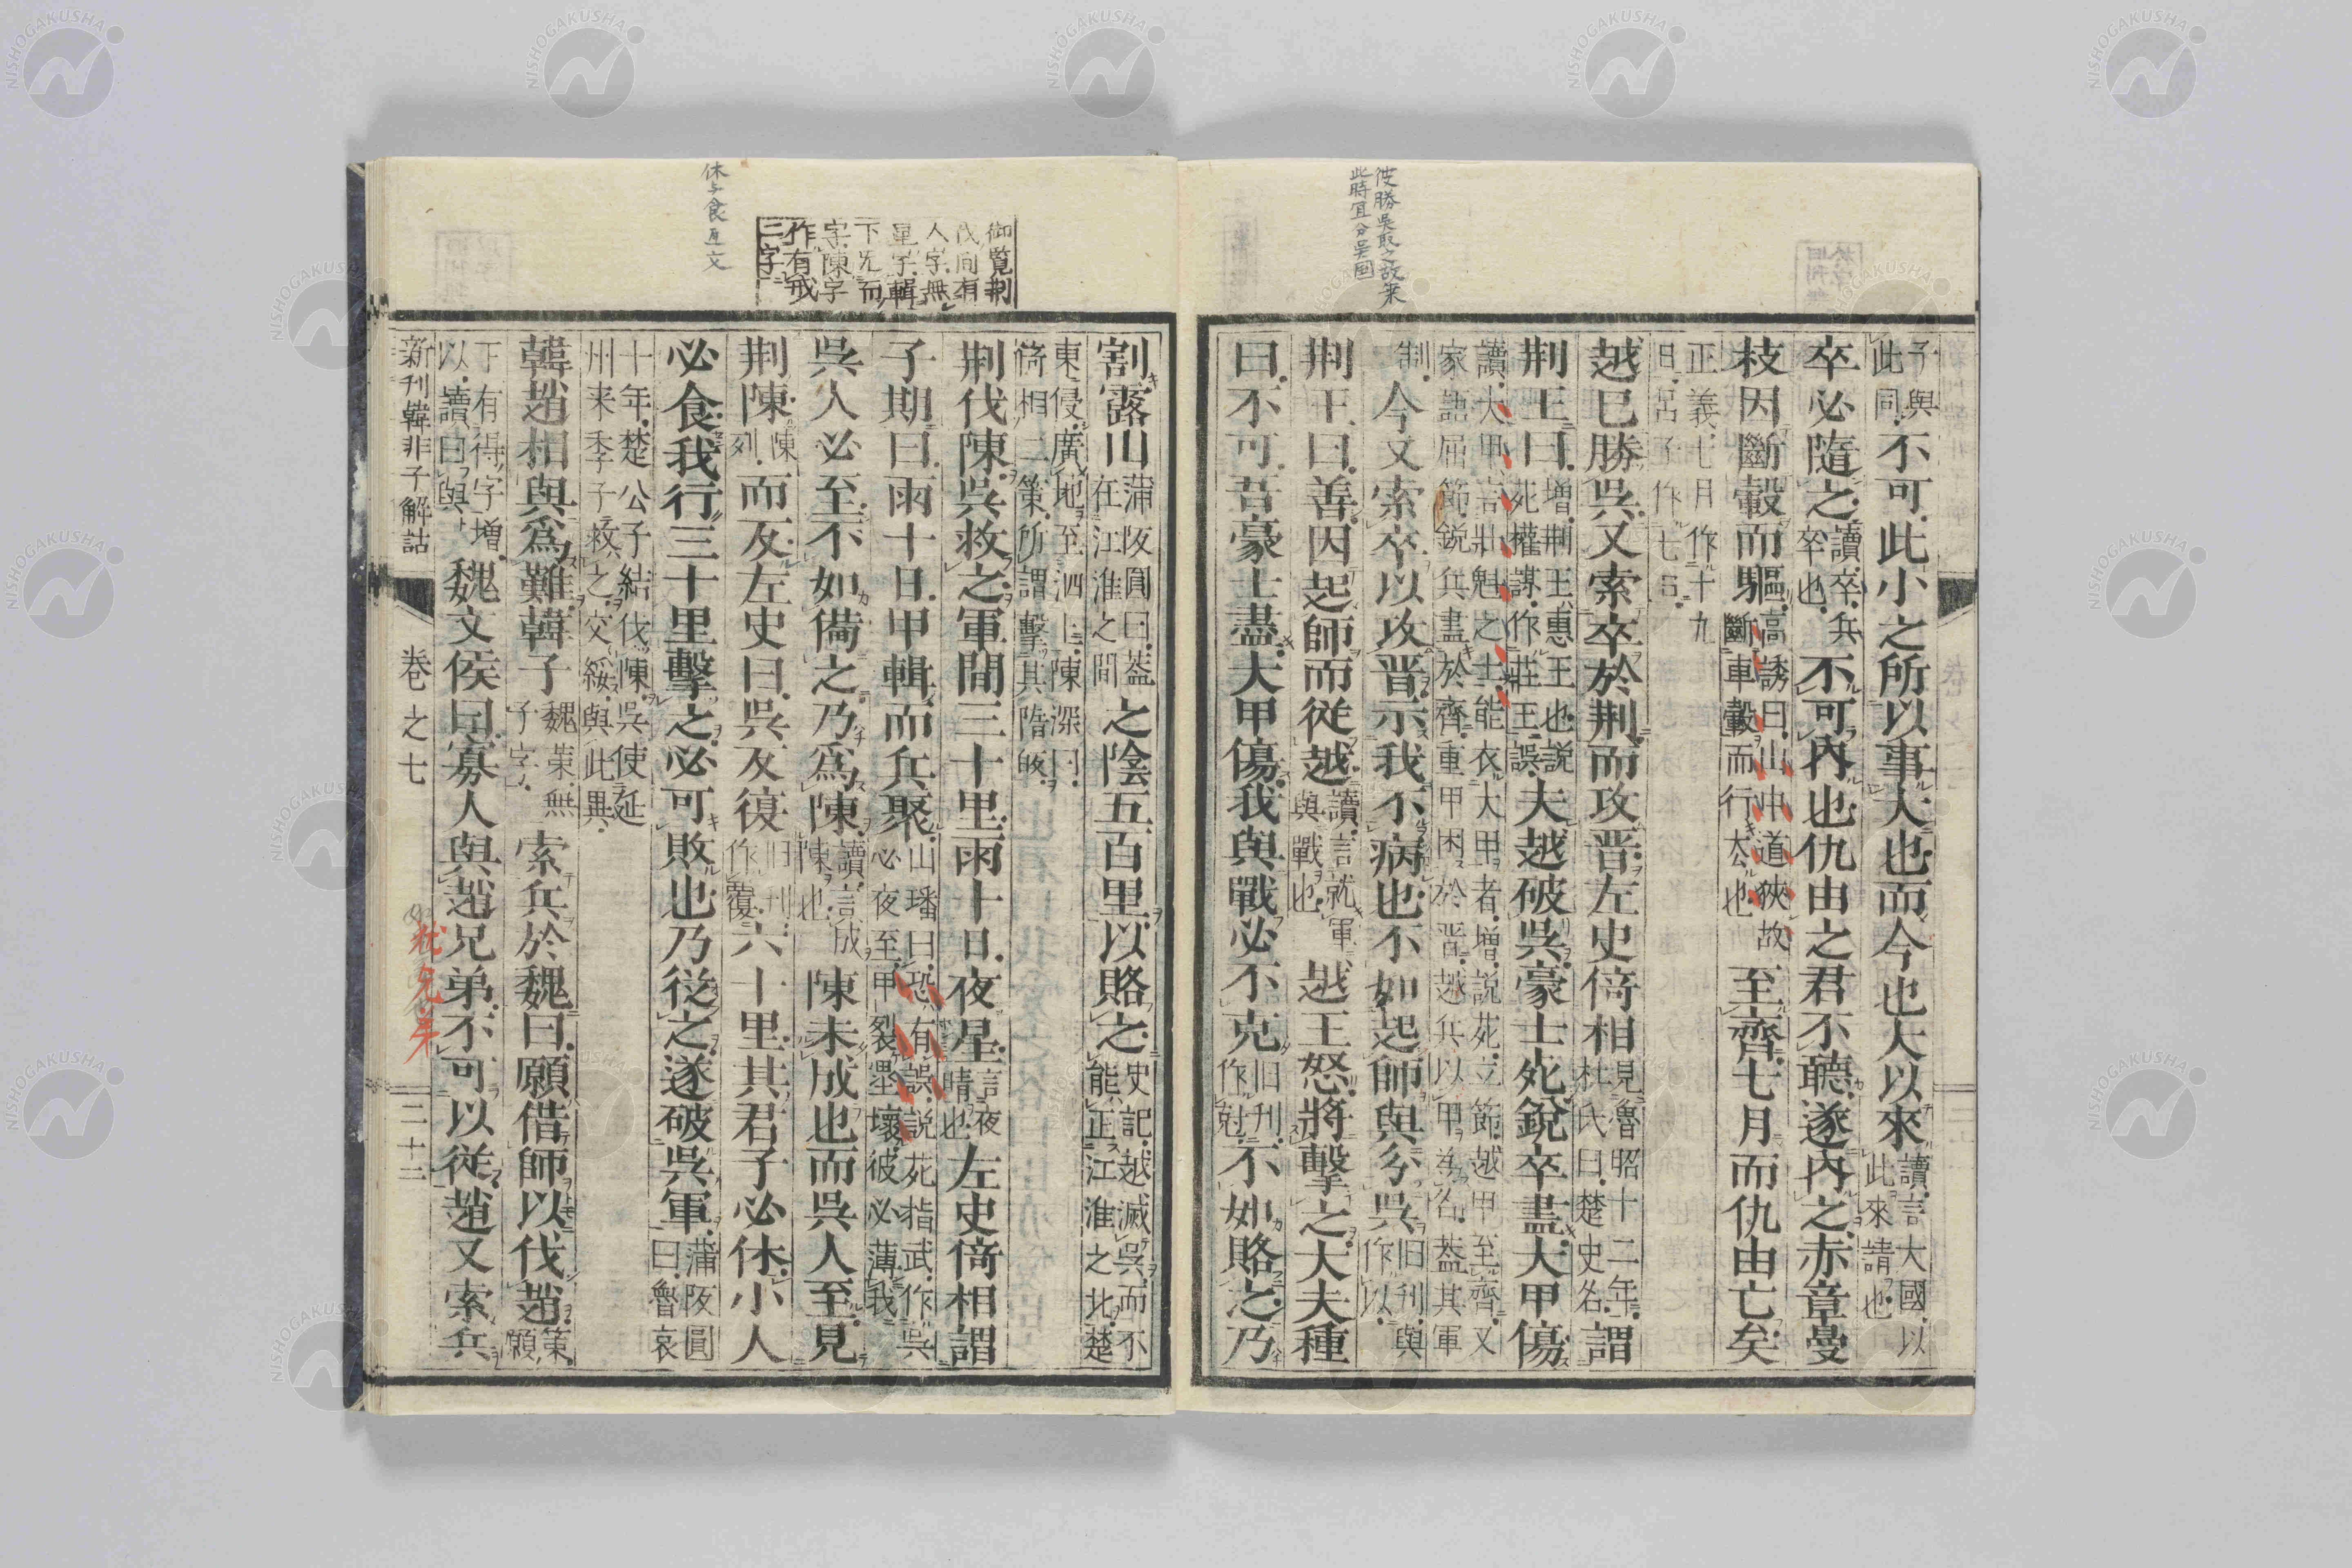 彼勝吳取之故来
此時宜分吳国
子與
此同
不可此小之所以事大也而今也大以來
讀言大國以
此來請也
卒必隨之
讀卒兵
卒也
不可內也仇由之君不聽遂內之赤章曼
枝因斷轂而驅
高誘曰山中道狹故
斷車轂而行去也
至齊七月而仇由亡矣
正義七月作十九
日呂子作七日
越已勝吳又索卒於荆而攻晋左史倚相
見魯昭十二年
杜氏曰楚史名
謂
荆王曰
增荆王惠王也説
死權謀作莊王誤
夫越破吳豪士死銳卒盡大甲傷
讀大甲言壯魁之士能衣大甲者增説死立節越甲至齊又
家語屈節鋭兵盡於齊重甲困於晋越兵以甲為名蓋其軍
制
今又索卒以攻晋示我不病也不如起師與分吳
旧刋與
作以
荆王曰善因起師而從越
讀言就軍
與戰也
越王怒將擊之大夫種
曰不可吾豪士盡大甲傷我與戰必不克
旧刋
作尅
不如賂之乃
御覧荆
伐同有
人字無
星字輯
下无而
字陳字
作有戒
三字
休与食互文
割露山
蒲阪圓曰蓋
在江淮之間
之陰五百里以賂之
史記越滅吳而不
能正江淮之北楚
東侵廣地至泗上陳深曰
倚相二策所謂擊其陗敀
荆伐陳吳救之軍間三十里雨十日夜星
言夜
晴也
左史倚相謂
子期曰雨十日甲輯而兵聚
山璠曰恐有誤説死指武作吳
必夜至甲裂壘壞彼必薄我
吳人必至不如備之乃為陳
讀言成
陳也
陳未成也而吳人至見
荆陳
陳
列
而反左史曰吳反復
旧刋
作覆
六十里其君子必休小人
必食我行三十里擊之必可敗也乃從之遂破吳軍
蒲阪圓
曰魯哀
十年楚公子結伐陳吳使延
州来季子救之交綏與此異
韓趙相與為難韓子
魏策無
子字
索兵於魏曰願借師以伐趙
策
願
下有得字增
以讀曰與
魏文侯曰寡人與趙兄弟不可以從趙又索兵
新刊韓非子解詁
卷之七
三十二